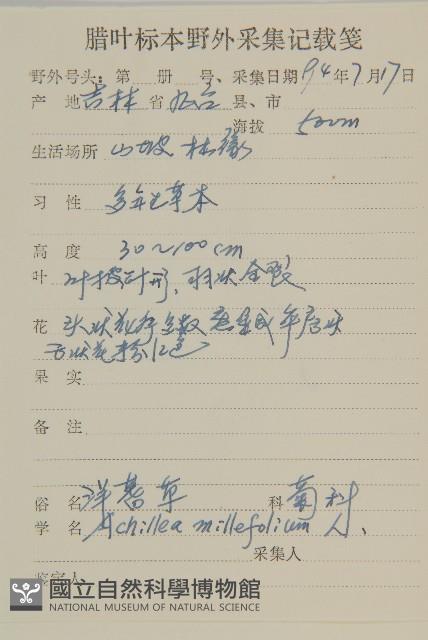 腊叶标本野外采集记载笺
野外号头：第 册 号、采集日期 94年7月17日
产 地 吉林 省 九台 县、市
海拔 500m
生活场所 山坡 林缘
习 性 多年生草本
高 度 30～100cm
叶 叶披针形，羽状全裂
花 头状花序
舌状花粉红色
果 实
备 注
俗 名 洋蓍草 科 菊科
学 名 Achillea millefolium
采集人
鉴定人
國立自然科學博物館
NATIONAL MUSEUM OF NATURAL SCIENCE